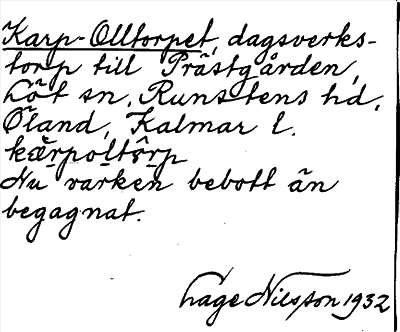 Karp-Olltorpet, dagsverks-
torp till Prästgården,
Löt sn, Runstens hd,
Öland, Kalmar l.
kærpoltôrp
Nu varken bebott än
begagnat.
Hage Nilsson 1932